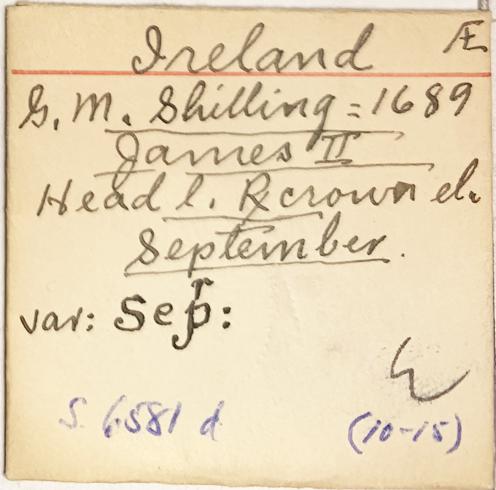 Ireland Æ
G. M. Shilling = 1689
James II
Head l. R crown etc.
September.
var: Sepr:
S. 6581 d (10-15)